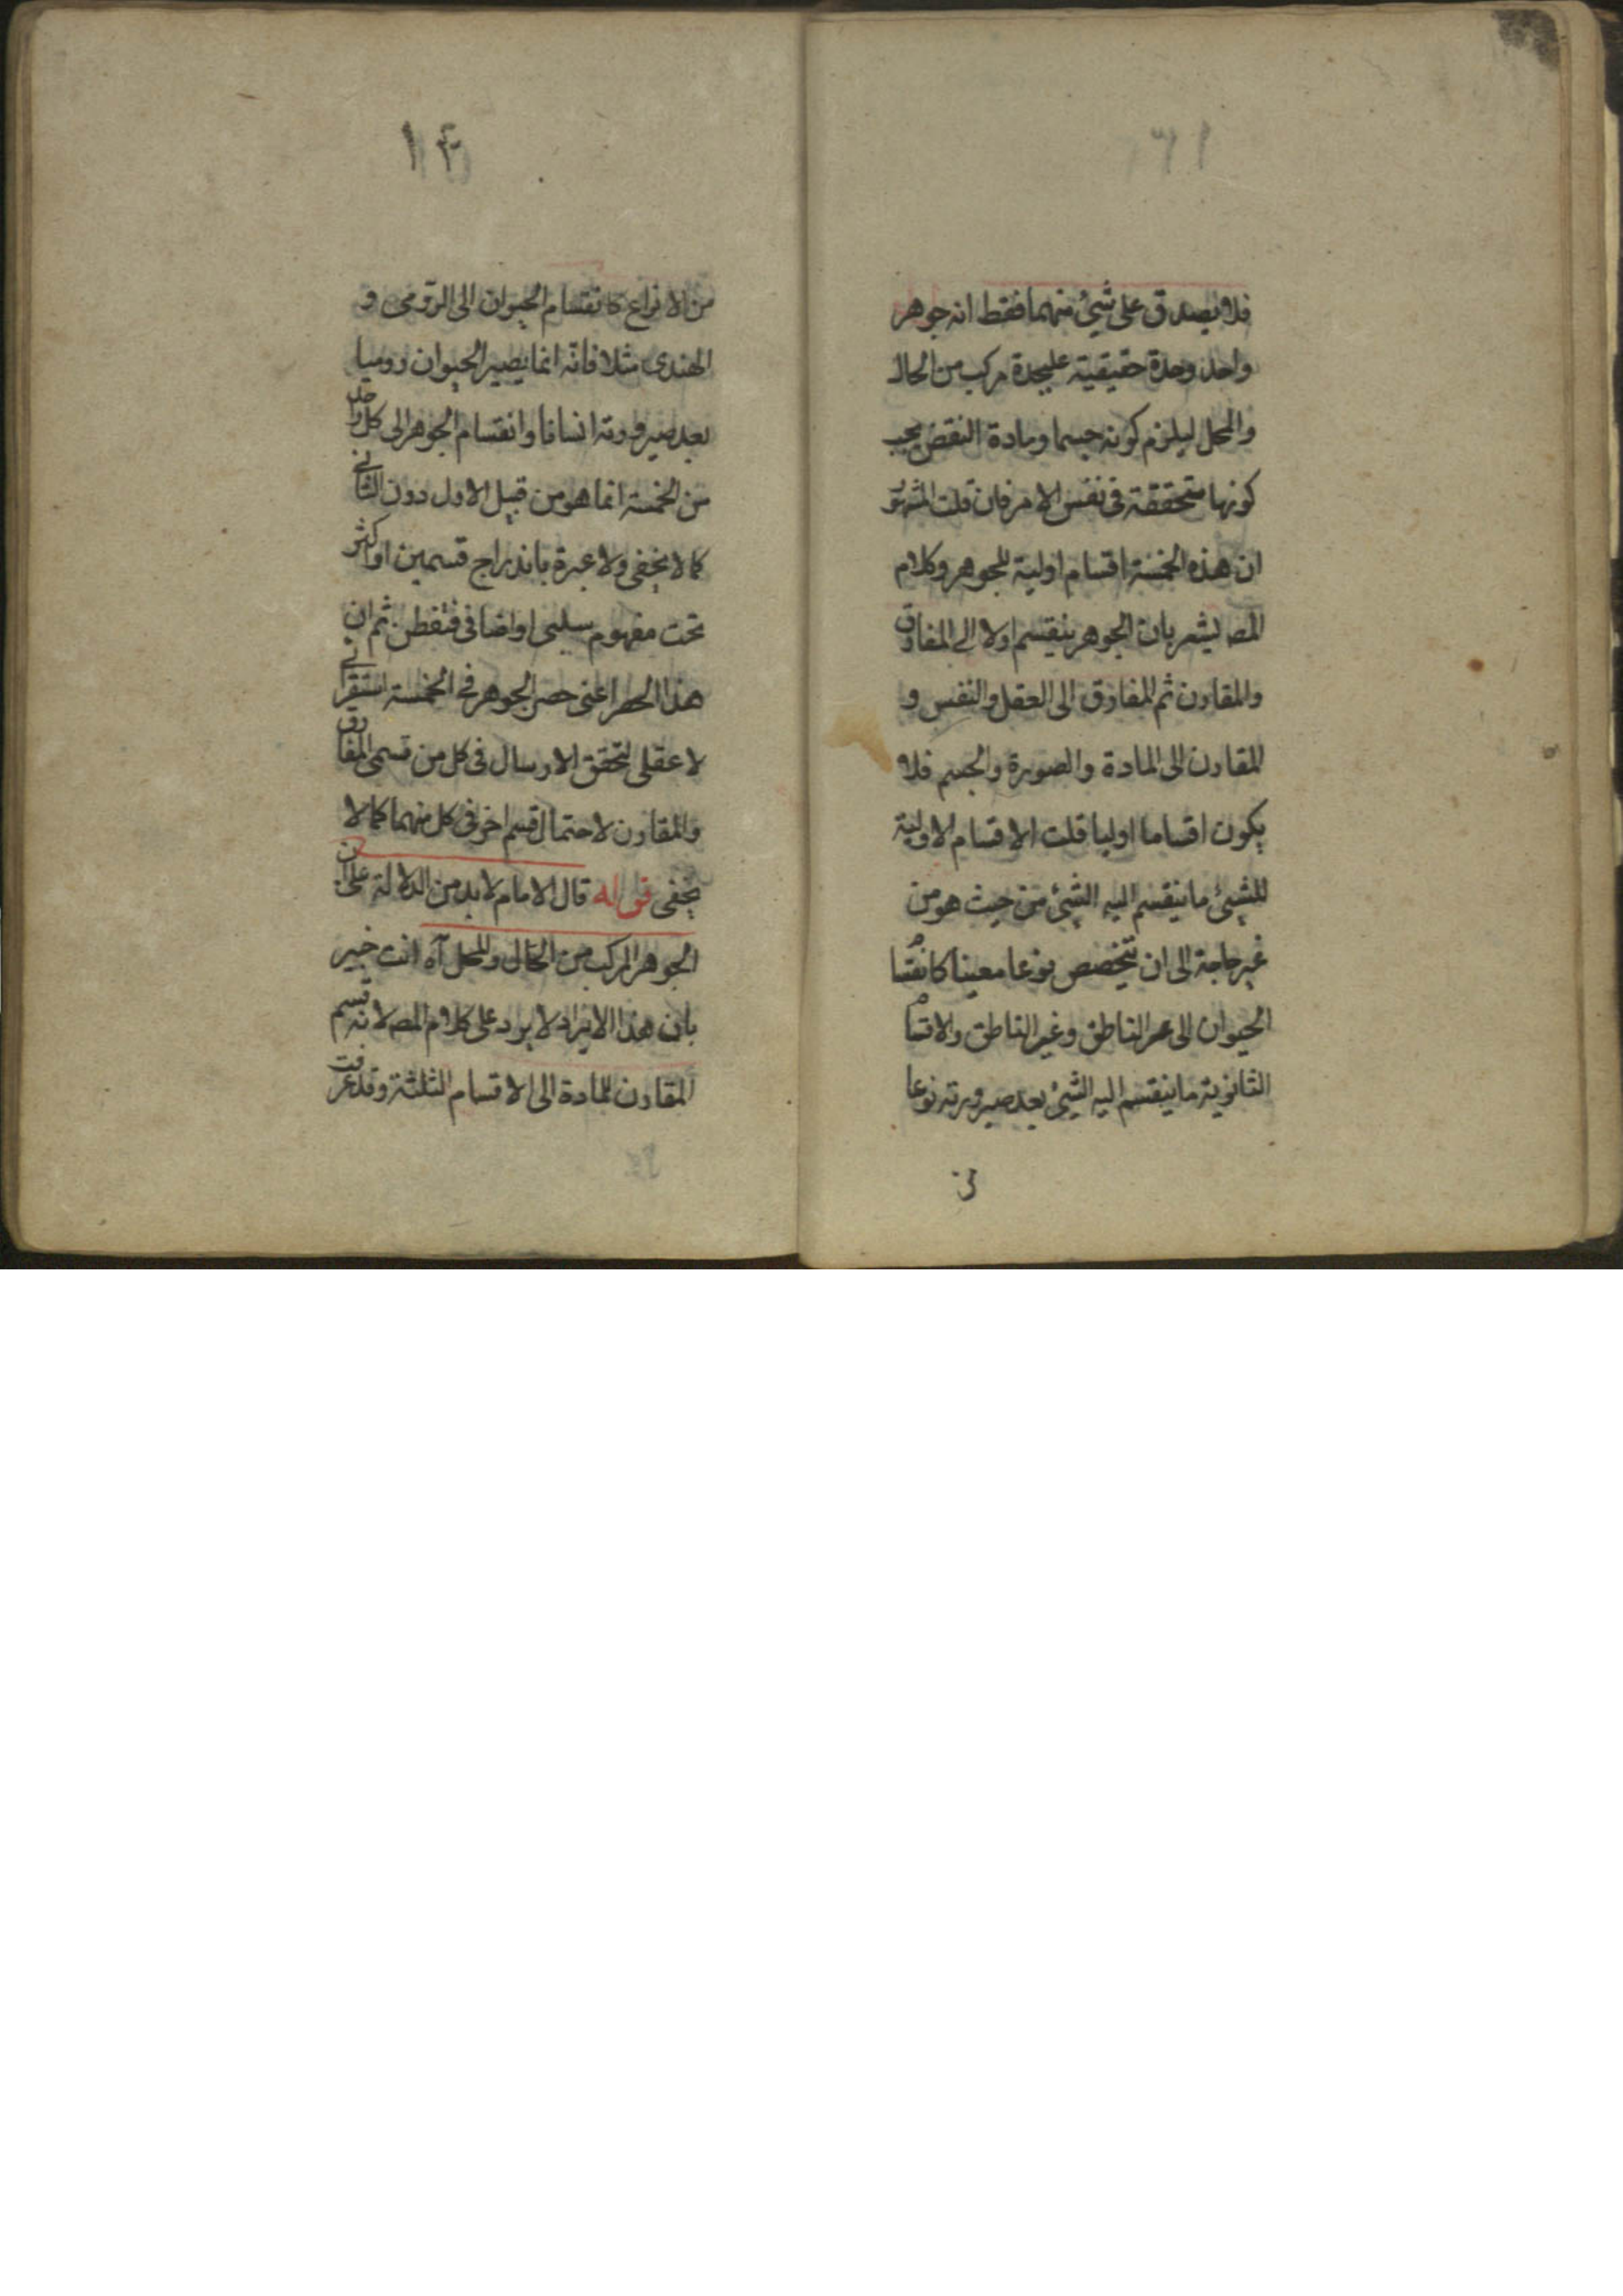 فلا يصدق على شيئ منهما فقط انه جوهر
واحد وحدة حقيقية عليحدة مركب من الحال
والمحل ليلزم كونه جسما ومادة النقض يجب
كونها متحققة في نفس الامر فان قلت المشهور
ان هذه الخمسة اقسام اولية للجوهر وكلام
المص يشعر بان الجوهر ينقسم اولا الى المفارق
والمقارن ثم المفارق الى العقل والنفس و
المقارن الى المادة والصورة والجسم فلا
يكون اقساما اوليا قلت الاقسام الاولية
للشيئ ما ينقسم اليه الشيئ من حيث هو من
غير حاجة الى ان يتخصص نوعا معينا كانقسام
الحيوان الى الناطق وغير الناطق والاقسام
الثانوية ما ينقسم اليه الشيئ بعد صيرورته نوعا
من
١٤
من الانواع كانقسام الحيوان الى الرومى و
الهندى مثلا فانه انما يصير الحيوان روميا
بعد صيرورته انسانا وانقسام الجوهر الى كل واحد
من الخمسة انما هو من قبيل الاول دون الثانى
كما لا يخفى ولا عبرة باندراج قسمين او اكثر
تحت مفهوم سلبى او اضافى فتفطن ثم ان
هذا الحصر اعنى حصر الجوهر فى الخمسة استقرائى
لا عقلى لتحقق الارسال فى كل من قسمى المفارق
والمقارن لاحتمال قسم اخر فى كل منهما كما لا
يخفى قوله قال الامام لا بد من الدلالة على ان
الجوهر المركب من الحال والمحل آه انت خبير
بان هذا الايراد لا يرد على كلام المص لانه قسم
المقارن للمادة الى الاقسام الثلثة وقد عرفت